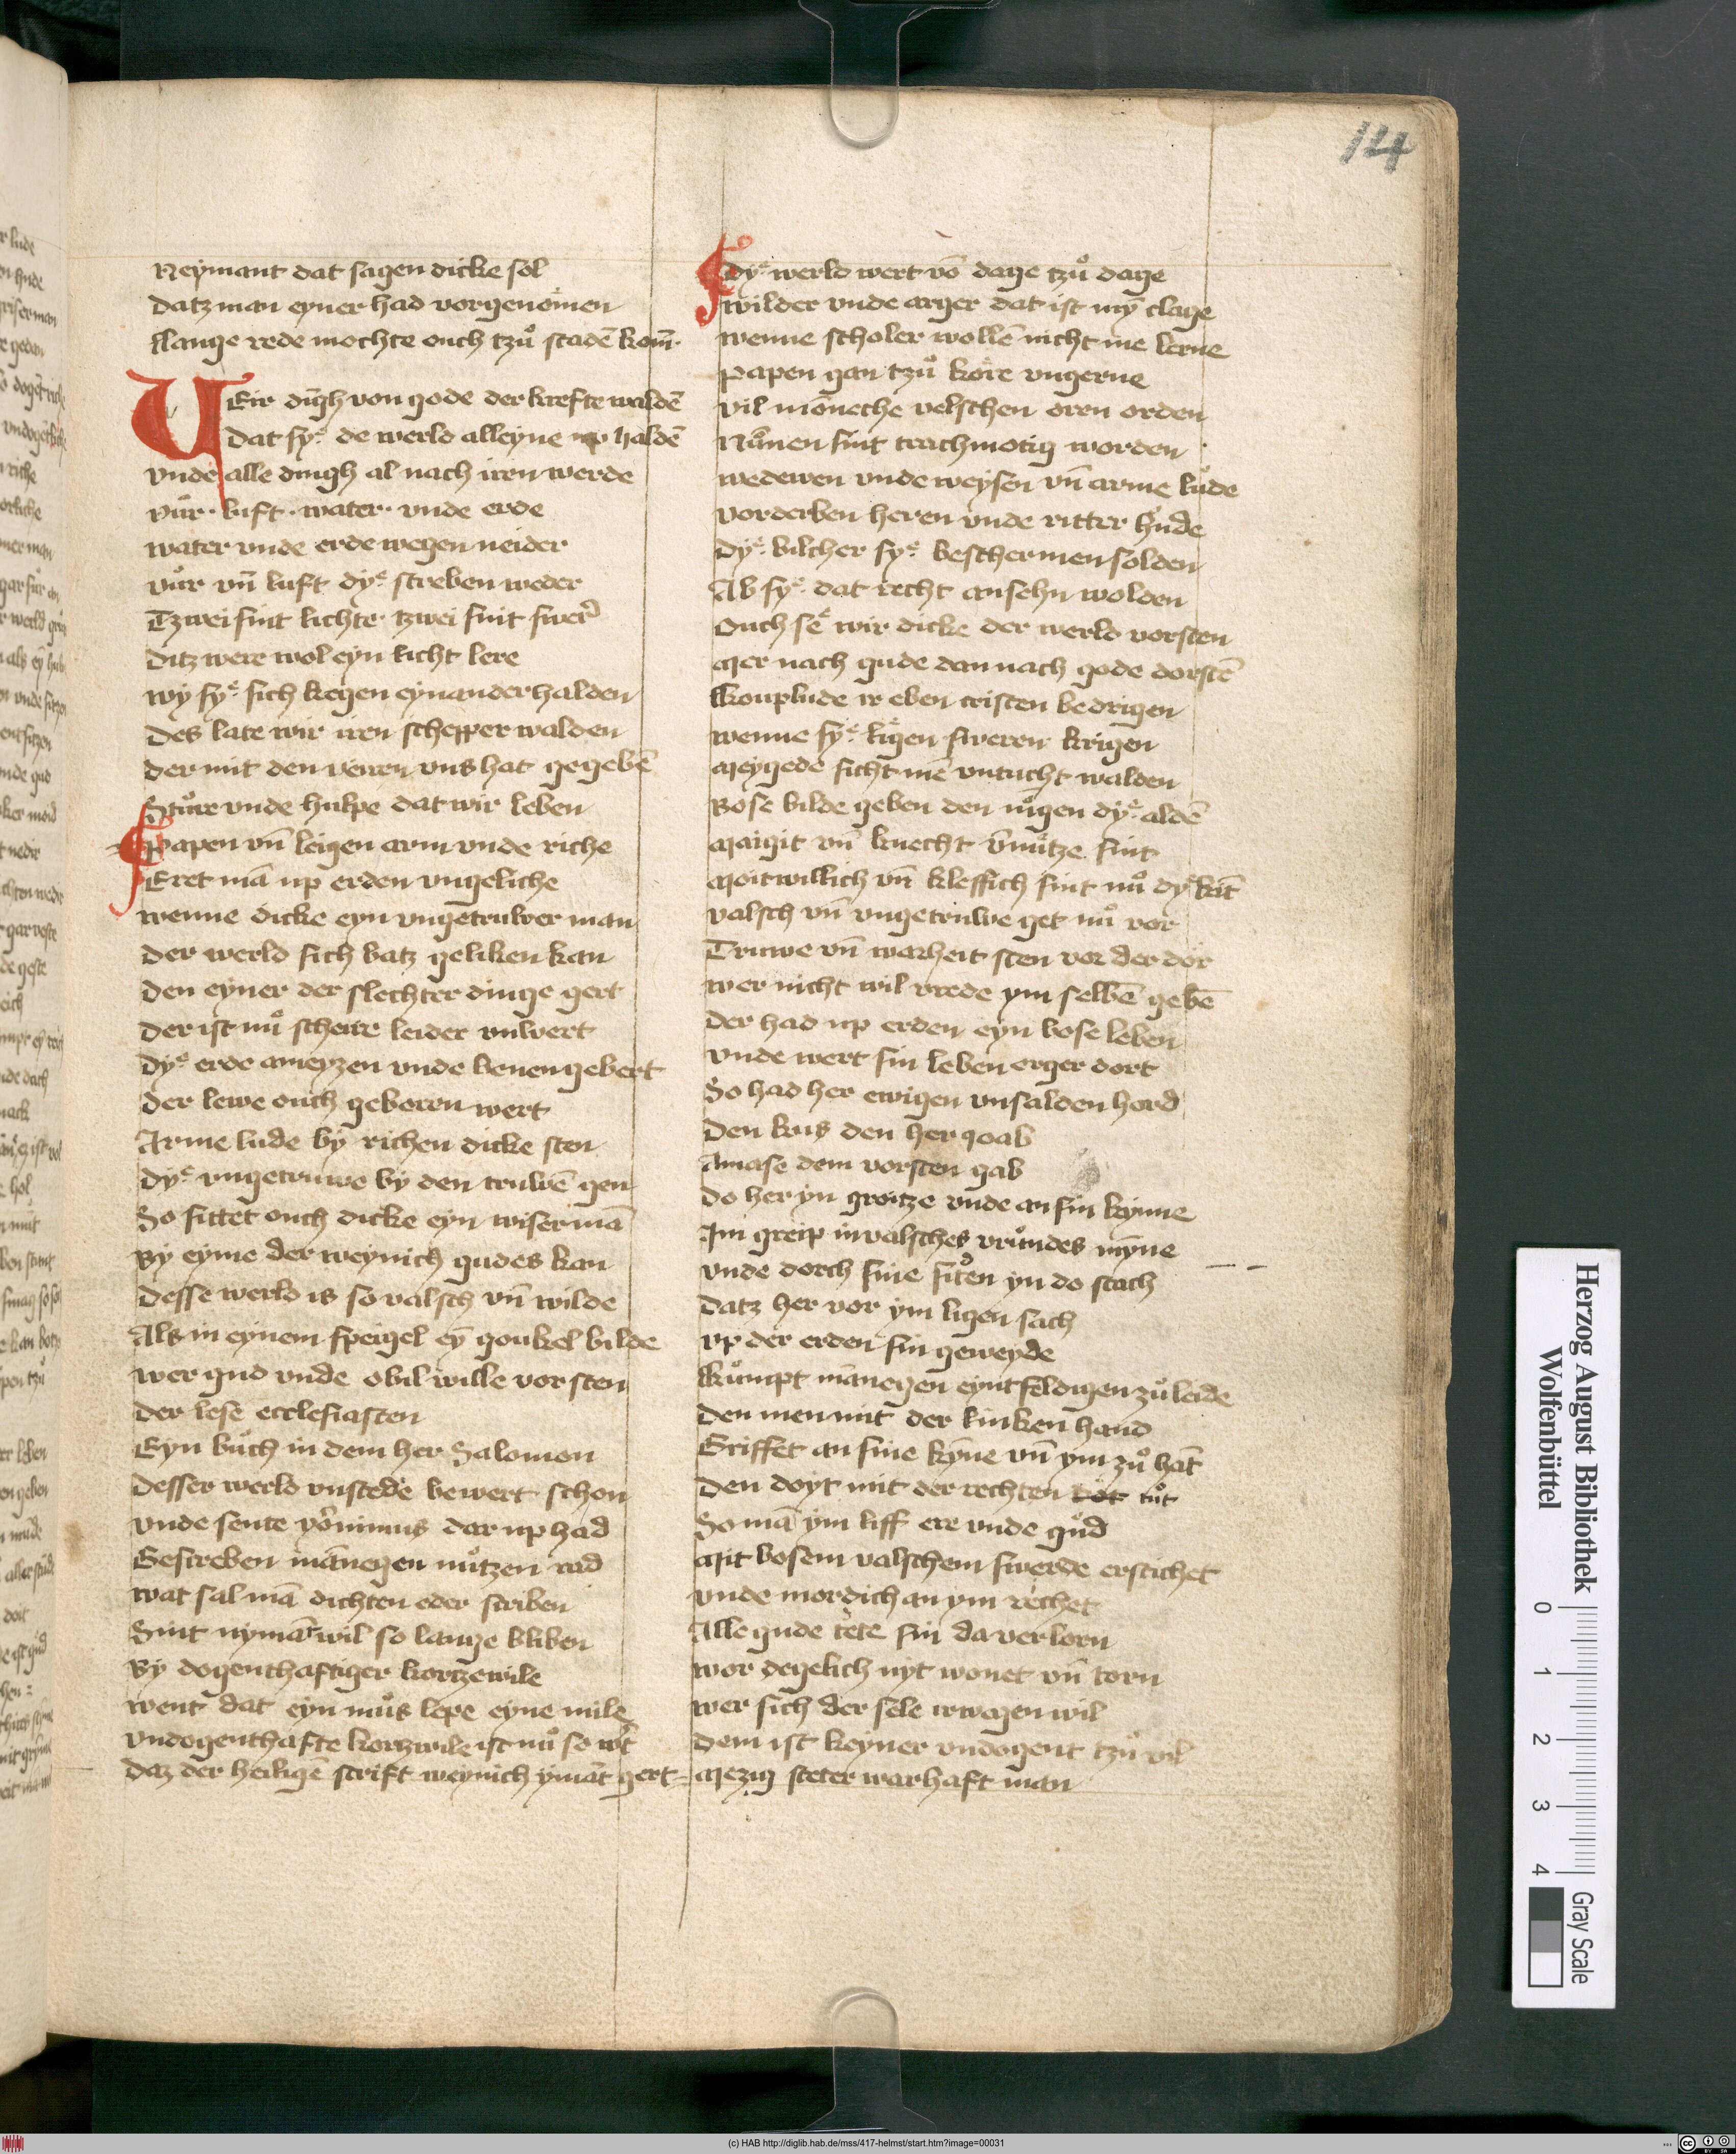 14
Neymant dat sagen dicke sol
Datz man eyner had vorgenomen
Llange rede mochte ouch tzuͦ stadē kom̄
VEir dīgh von gode der krefte waldē
Dat syͤ de werld alleyne up haldē
Vnde alle dingh al nach iren werde
Vuͤr · luft · water · vnde erde
Water vnde erde wegen neider
Vuͦr vn̄ luft dyͤ streben weder
Tzwei sint lichte tzwei sint swer
Ditz were wol eyn licht lere
Wy syͤ sich kegen eynander halden
Des late wir iren schepper walden
Der mit den viren vns hat gegebē
Stuͦre vnde hulpe dat wir leben
Papen vn̄ leigen arm vnde riche
Eret mā up erden vngeliche
Wenne dicke eyn vngetruwer man
Der werld sich batz geliken kan
Den eyner der slechter dinge gert
Der ist nuͦ scheire leider vnwert
Dyͤ erde ameyzen vnde benen gebert
Der lewe ouch geboren wert
Arme lude by richen dicke sten
Dyͤ vngetruwe by den truwē gen
So sittet ouch dicke eyn wiser mā
By eyme der weynich gudes kan
Desse werld is so valsch vn̄ wilde
Als in eynem speigel eȳ goukel bilde
Wer gud vnde obil wille vorsten
Der lese ecclesiasten
Eyn buͦch in dem her Salomon
Desser werld vnstede bewert schon
Vnde sente Ieronimus dar up had
Gescreben mānegen nuͦtzen rad
Wat sal mā dichten oder scriben
Sint nymāt wil so lange bliben
By dogenthaftiger kortzewile
Went dat eyn muͦs lepe eyne mile
Vndogenthafte kortzwile ist nuͦ so wert
Daz der heiligē scrift weynich ymāt gert
Dyͤ werld wert vō dage tzuͦ dage
Wilder vnde arger dat ist mȳ clage
Wenne scholer wollē nicht me lerne
Papen gan tzuͦ kore vngerne
Vil mōneche velschen oren orden
Nuͦnen sint trachmotig worden
Wedewen vnde weysen vn̄ arme luͦde
Vorderben heren vnde ritter huͤde
Dyͤ bilcher syͤ beschermen solden
Ab syͤ dat recht ansehn wolden
Ouch seͤ wir dicke der werld vorsten
Mer nach gude dan nach gode dorstē
Kouplude ir eben cristen bedrigen
Wenne syͤ ligen sweren krigen
Meygede sicht mē vntucht walden
Bose bilde geben den iuͦgen dyͤ aldē
Maigit vn̄ knecht vnnuͤtze sint
Moitwillich vn̄ kleffich sint nuͦ dyͤ kīt
Valsch vn̄ vngetruwe get nuͦ vor
Truwe vn̄ warheit sten vor der dor
Wer nicht wil vrede ym selbē gebē
Der had up erden eyn bose leben
Vnde wert sin leben erger dort
So had her ewigen vnsalden hord
Den kus den her Joab
Amase dem vorsten gab
Do her yn grotze vnde an sin kynne
Im greip in valsches vruͦndes mȳne
Vnde dorch sine siten yn do stach
Datz her vor ym ligen sach
Vp der erden sin geweyde
Kuͦmpt mānegen eyntfeldigen zuͦ leide
Den men mit der linken hand
Griffet an sine kȳne vn̄ ym zuͦ hāt
Den doyt mit der rechten tuͦt
So mā ym liff ere vnde guͦd
Mit bosem valschem swerde erstichet
Vnde mordich an ym rechet
Alle gude tete sin da verlorn
Wor degelich nyt wonet vn̄ torn
Wer sich der sele irwegen wil
Dem ist keyner vndogent tzuͦ vil
Mezig steter warhaft man
Herzog August Bibliothek
Wolfenbüttel
0 1 2 3 4
Gray Scale
(c) HAB http://diglib.hab.de/mss/417-helmst/start.htm?image=00031